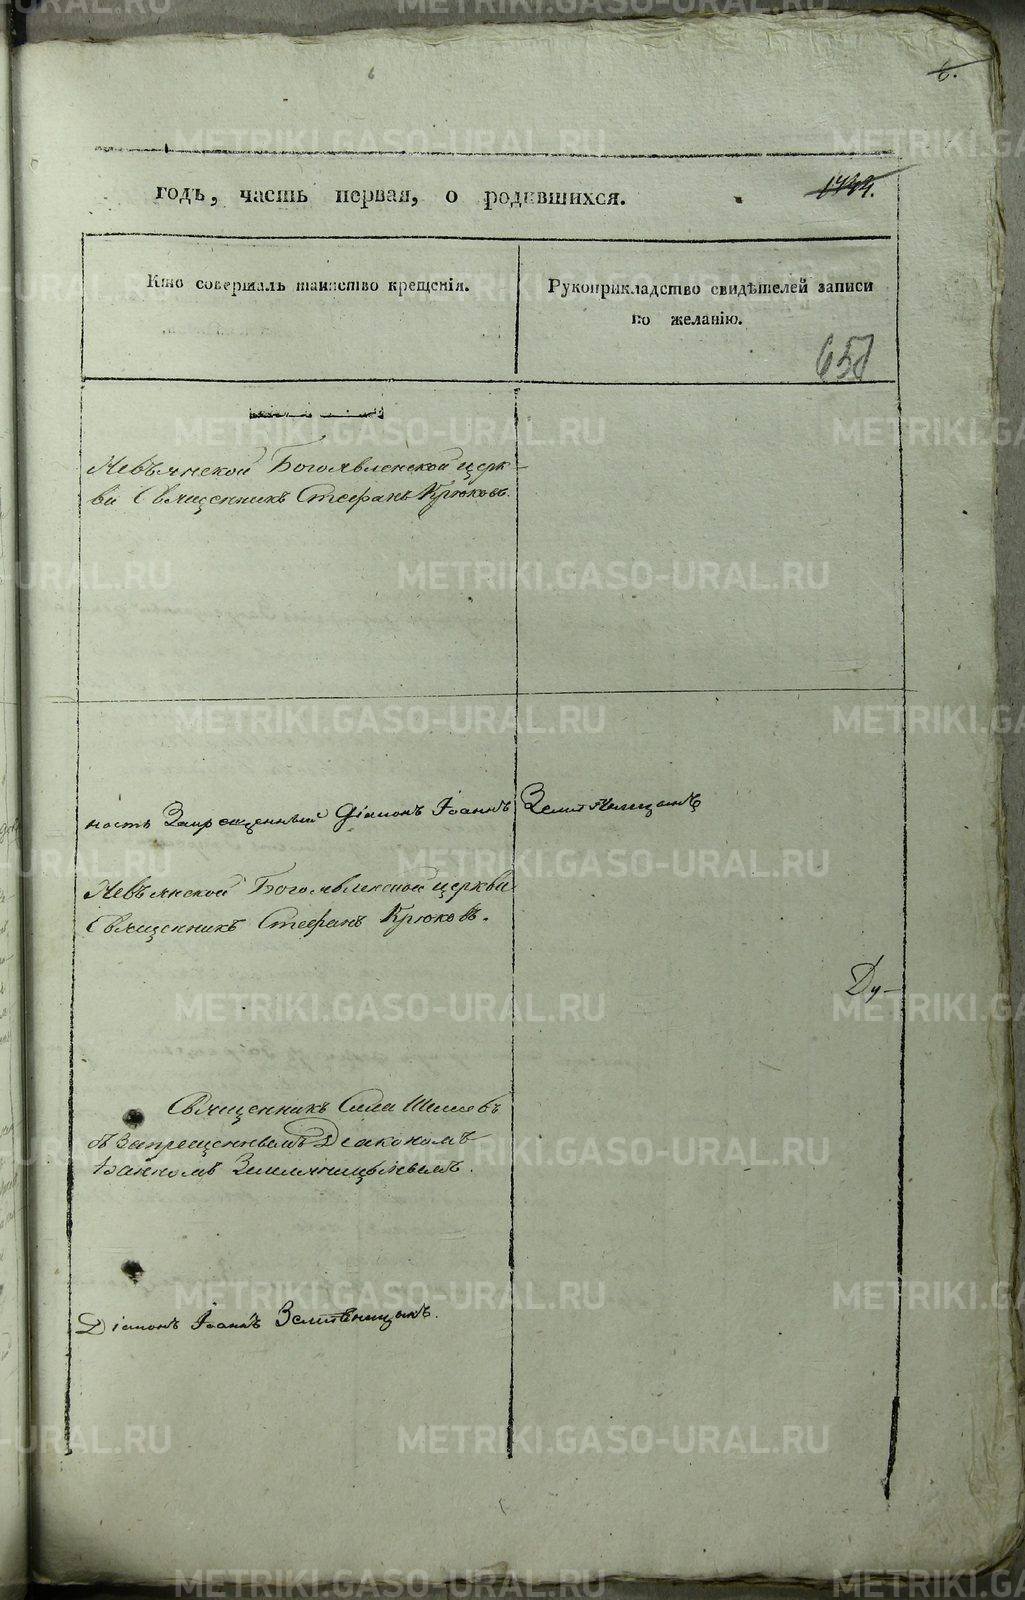 6.
годъ, часть первая, о родившихся.
Кто совершалъ таинство крещенія.
Рукоприкладство свидѣтелей записи
по желанію.
658
Невъянской Богоявленской церк-
ви Священникъ Стефанъ Крюковъ.
ность Запрещенный Діаконъ Іоаннъ
Невъянской Богоявленской церкви
Священникъ Стефанъ Крюковъ.
Ду-
Священникъ Сила
съ Запрещеннымъ Діакономъ
Іоанномъ
Діаконъ Іоаннъ
METRIKI.GASO-URAL.RU